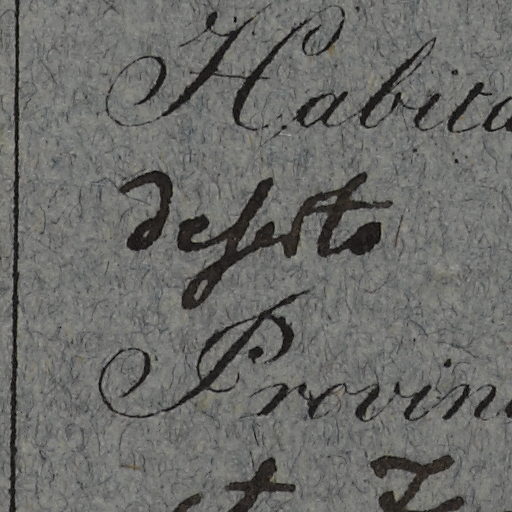 Habita
deserto
Provin